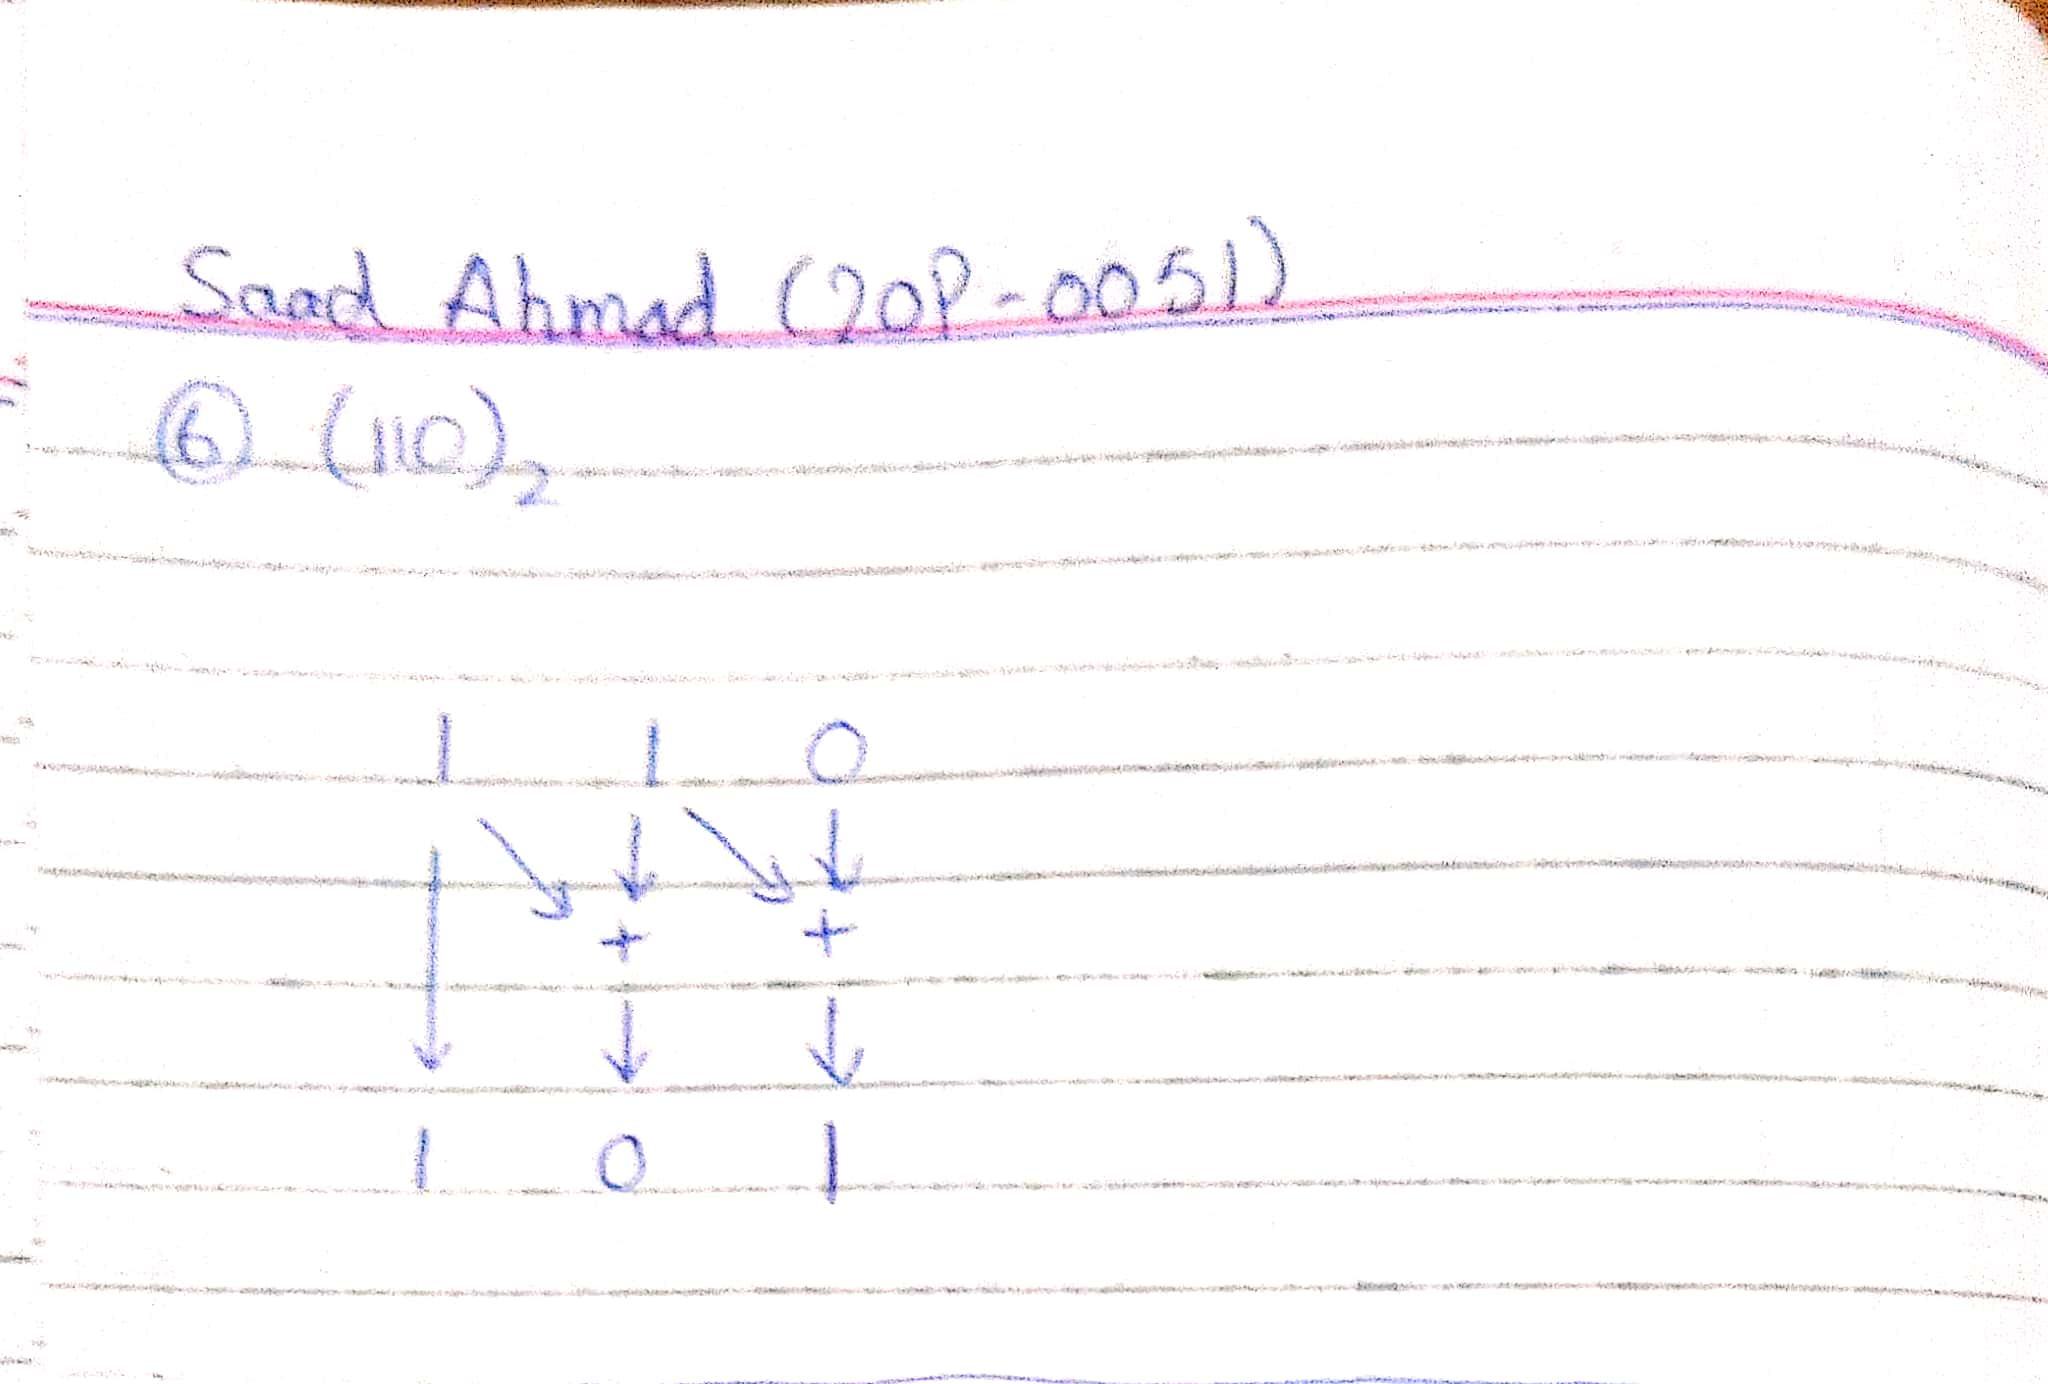 Saad Ahmad (20P-0051)
⑥ (110)₂
1 1 0
↓ ↘ ↓ ↘ ↓
+ +
↓ ↓
1 0 1